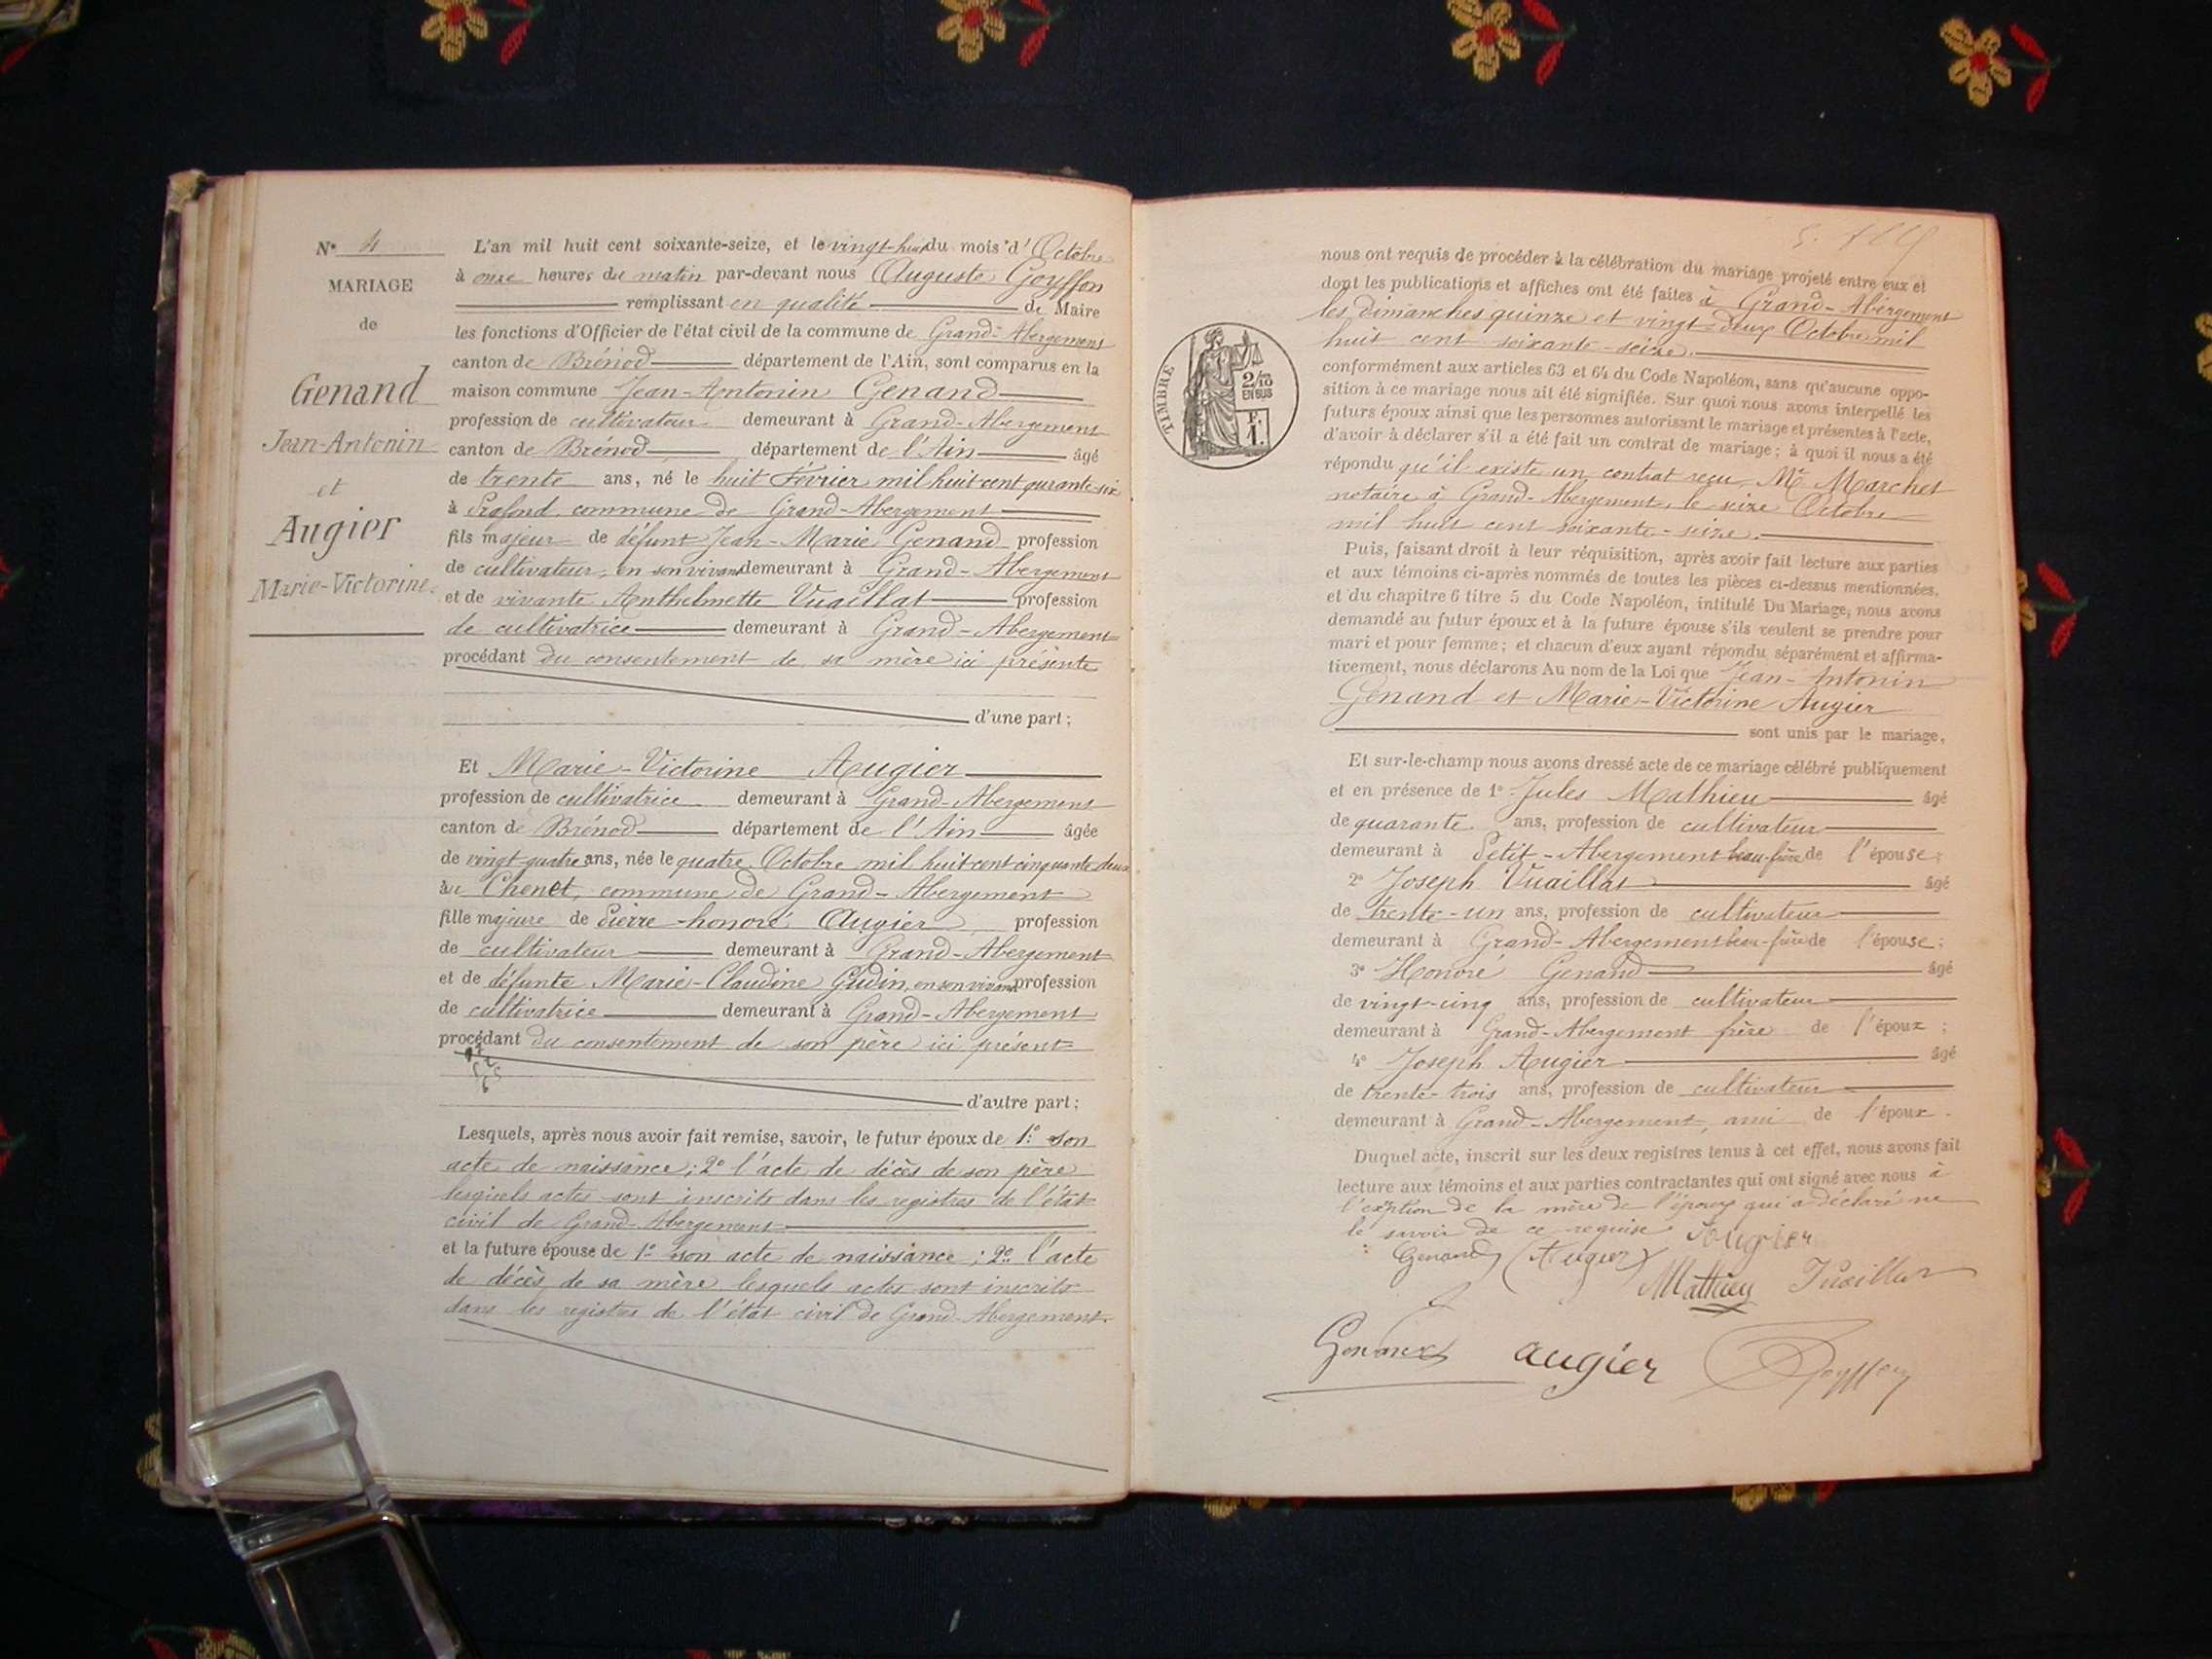 N° 4
MARIAGE
de
Genand
Jean-Antonin
et
Augier
Marie-Victorine
L'an mil huit cent soixante-seize, et le vingt-huit du mois d'Octobre
à onze heures du matin par-devant nous Auguste Goyffon
remplissant en qualité de Maire
les fonctions d'Officier de l'état civil de la commune de Grand-Abergement
canton de Brénod département de l'Ain, sont comparus en la
maison commune Jean-Antonin Genand
profession de cultivateur demeurant à Grand-Abergement
canton de Brénod département de l'Ain âgé
de trente ans, né le huit Février mil huit cent qurante-six
à Prafond commune de Grand-Abergement
fils majeur de défunt Jean-Marie Genand profession
de cultivateur, en son vivant demeurant à Grand-Abergement
et de vivante Anthelmette Vuaillat profession
de cultivatrice demeurant à Grand-Abergement
procédant du consentement de sa mère ici présente
d'une part;
Et Marie-Victorine Augier
profession de cultivatrice demeurant à Grand-Abergement
canton de Brénod département de l'Ain âgée
de vingt-quatre ans, née le quatre Octobre mil huit cent cinquante-deux
au Chenet, commune de Grand-Abergement
fille majeure de Pierre-honoré Augier profession
de cultivateur demeurant à Grand-Abergement
et de défunte Marie-Claudine Gudin, en son vivant profession
de cultivatrice demeurant à Grand-Abergement
procédant du consentement de son père ici présent
d'autre part;
Lesquels, après nous avoir fait remise, savoir, le futur époux de 1° son
acte de naissance; 2° l'acte de décès de son père
lesquels actes sont inscrits dans les registres de l'état
civil de Grand-Abergement
et la future épouse de 1° son acte de naissance; 2° l'acte
de décès de sa mère lesquels actes sont inscrits
dans les registres de l'état civil de Grand-Abergement.
TIMBRE
2/10
EN SUS
F.
1.
nous ont requis de procéder à la célébration du mariage projeté entre eux et
dont les publications et affiches ont été faites à Grand-Abergement
les dimanches quinze et vingt-deux Octobre mil
huit cent soixante-seize.
conformément aux articles 63 et 64 du Code Napoléon, sans qu'aucune oppo-
sition à ce mariage nous ait été signifiée. Sur quoi nous avons interpellé les
futurs époux ainsi que les personnes autorisant le mariage et présentes à l'acte,
d'avoir à déclarer s'il a été fait un contrat de mariage; à quoi il nous a été
répondu qu'il existe un contrat reçu Me Marchet
notaire à Grand-Abergement, le seize Octobre
mil huit cent soixante-seize.
Puis, faisant droit à leur réquisition, après avoir fait lecture aux parties
et aux témoins ci-après nommés de toutes les pièces ci-dessus mentionnées,
et du chapitre 6 titre 5 du Code Napoléon, intitulé Du Mariage, nous avons
demandé au futur époux et à la future épouse s'ils veulent se prendre pour
mari et pour femme; et chacun d'eux ayant répondu séparément et affirma-
tivement, nous déclarons Au nom de la Loi que Jean-Antonin
Genand et Marie-Victorine Augier
sont unis par le mariage.
Et sur-le-champ nous avons dressé acte de ce mariage célébré publiquement
et en présence de 1° Jules Mathieu âgé
de quarante ans, profession de cultivateur
demeurant à Petit-Abergement beau-frère de l'épouse;
2° Joseph Vuaillat âgé
de trente-un ans, profession de cultivateur
demeurant à Grand-Abergement beau-frère de l'épouse;
3° Honoré Genand âgé
de vingt-cinq ans, profession de cultivateur
demeurant à Grand-Abergement frère de l'époux;
4° Joseph Augier âgé
de trente-trois ans, profession de cultivateur
demeurant à Grand-Abergement, ami de l'époux.
Duquel acte, inscrit sur les deux registres tenus à cet effet, nous avons fait
lecture aux témoins et aux parties contractantes qui ont signé avec nous à
l'exption de la mère de l'époux qui a déclaré ne
le savoir de ce requise. Augier
Genand Augier
Mathieu Vuaillat
Genand Augier Goyffon